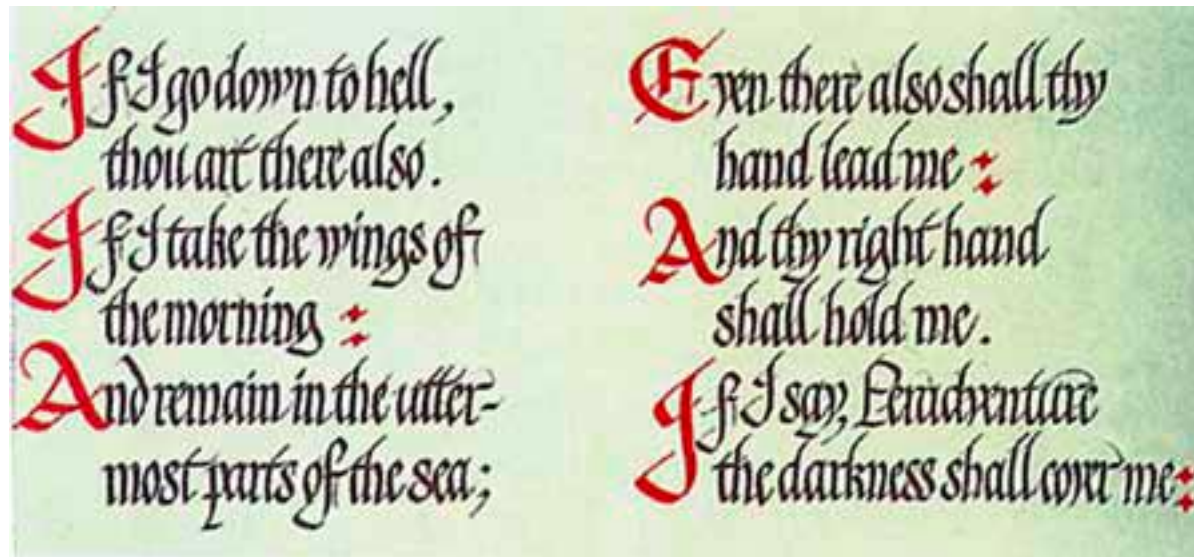 If I go down to hell,
thou art there also.
If I take the wings of
the morning :
And remain in the utter-
most parts of the sea;
Even there also shall thy
hand lead me :
And thy right hand
shall hold me.
If I say, Peradventure
the darkness shall cover me :